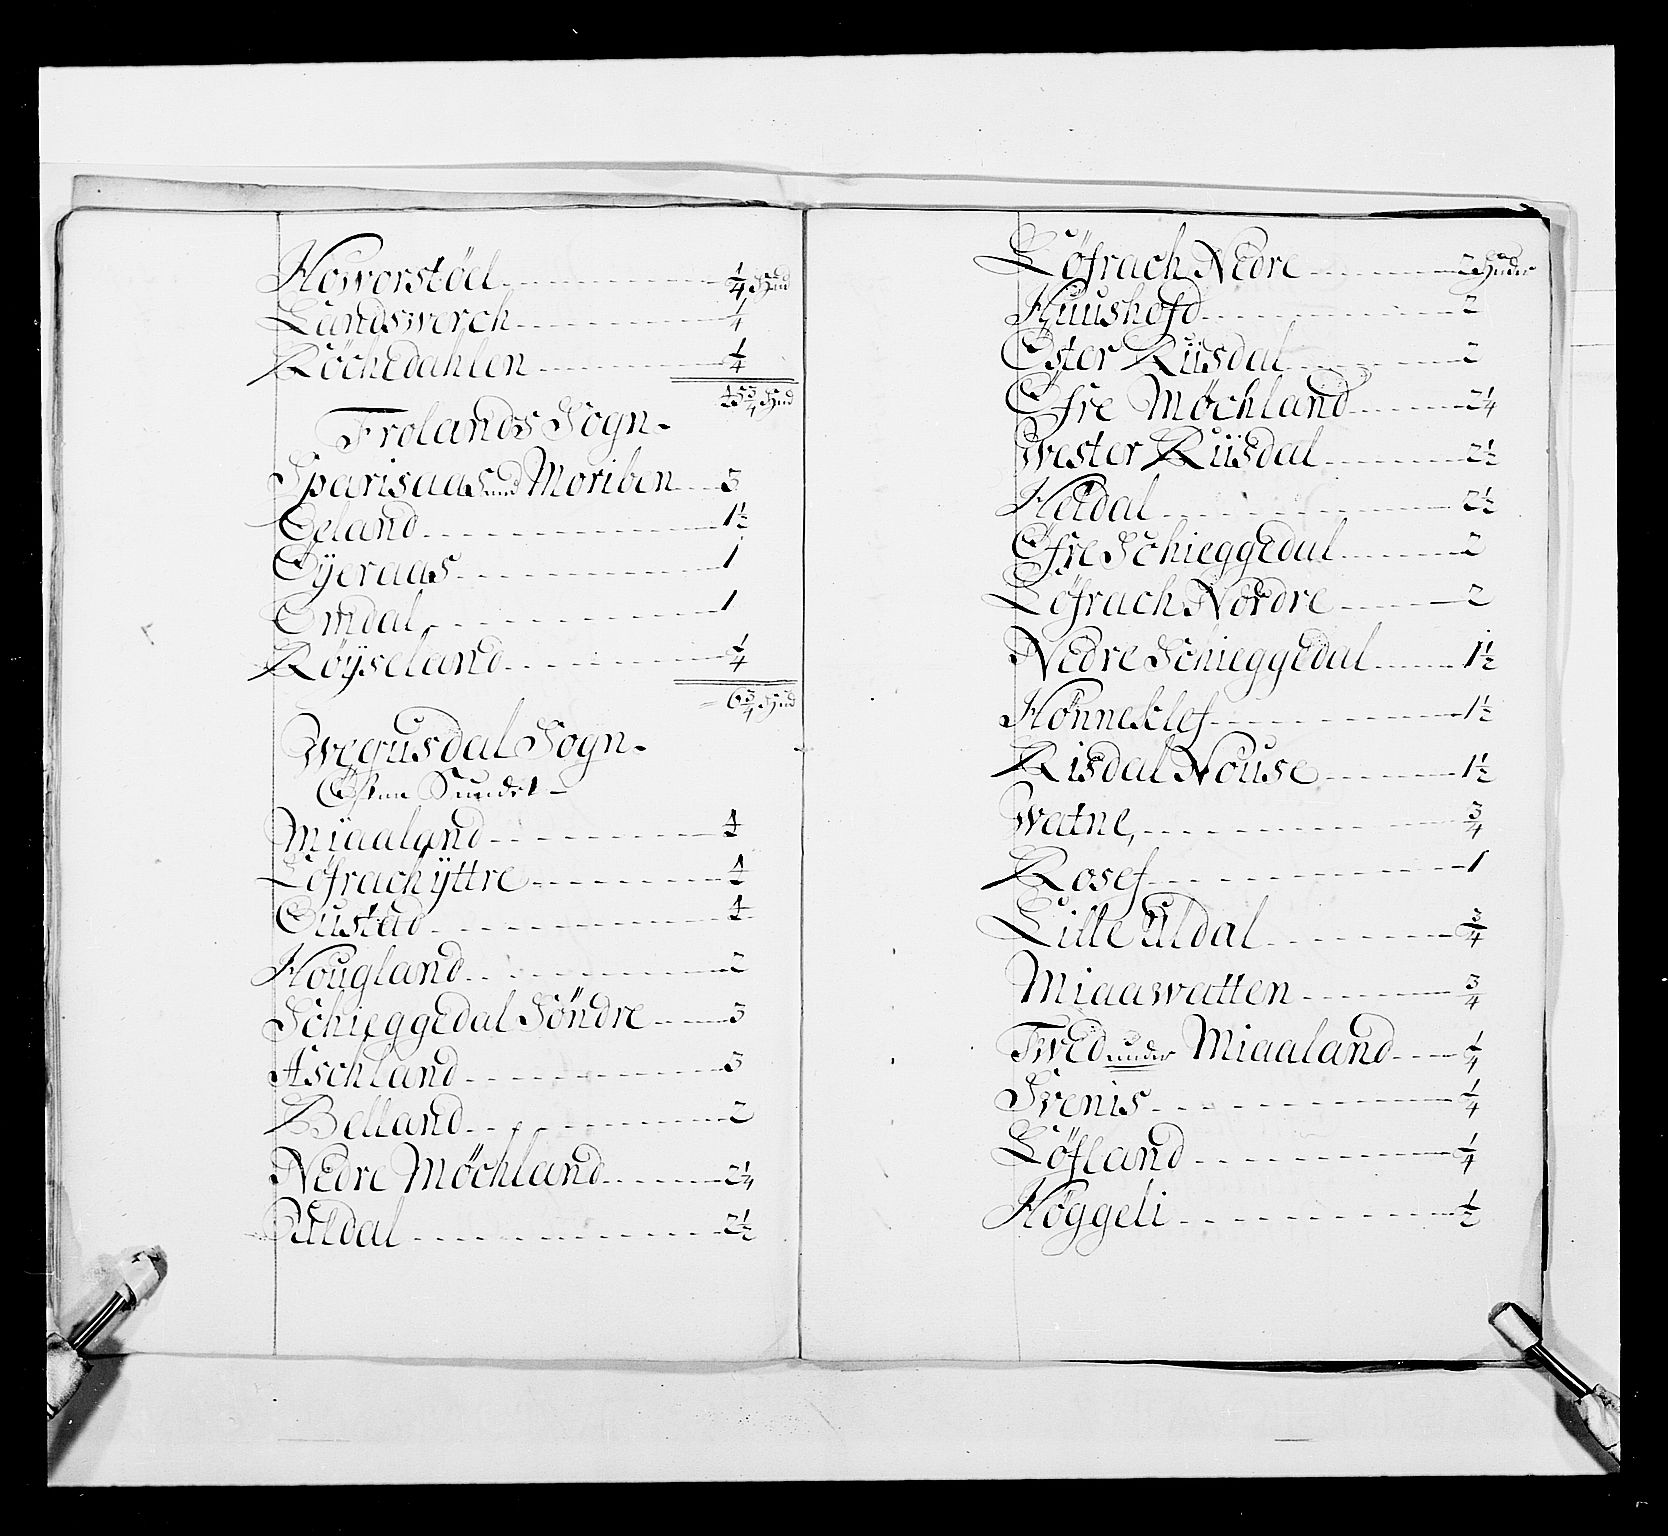 Howorstöel ¼ Hud
Landswerch ¼
Röchedahlen ¼
45¾ Hud
Frolands Sogn.
Sparisaas und Moriben 3
Oeland 1½
Öÿeraas 1
Omdal 1
Röÿseland ¼
6¾ Hud
Wegusdal Sogn.
Östen Sundet
Miaaland
Löfrach ÿttre
Oustad
Hougland 2
Schieggedal Söndre 3
Aschland 3
Belland 2
Nedre Möchland 2¼
Uldal 2½
Löfrach Nedre 2 Huder
Huushofd 2
Öster Riisdal 2
Öfre Möchland 2¼
Wester Riisdal 2½
Heidal 2½
Öfre Schieggedal 2
Löfrach Nordre 2
Nedre Schieggedal 1½
Hönneklef 1½
Risdal Nouse 1½
Watne, ¾
Rosef 1
Lille Uldal ¾
Miaawatten ¾
Twed under Miaaland ¼
Svenis ¼
Löfland ¼
Höggeli ½